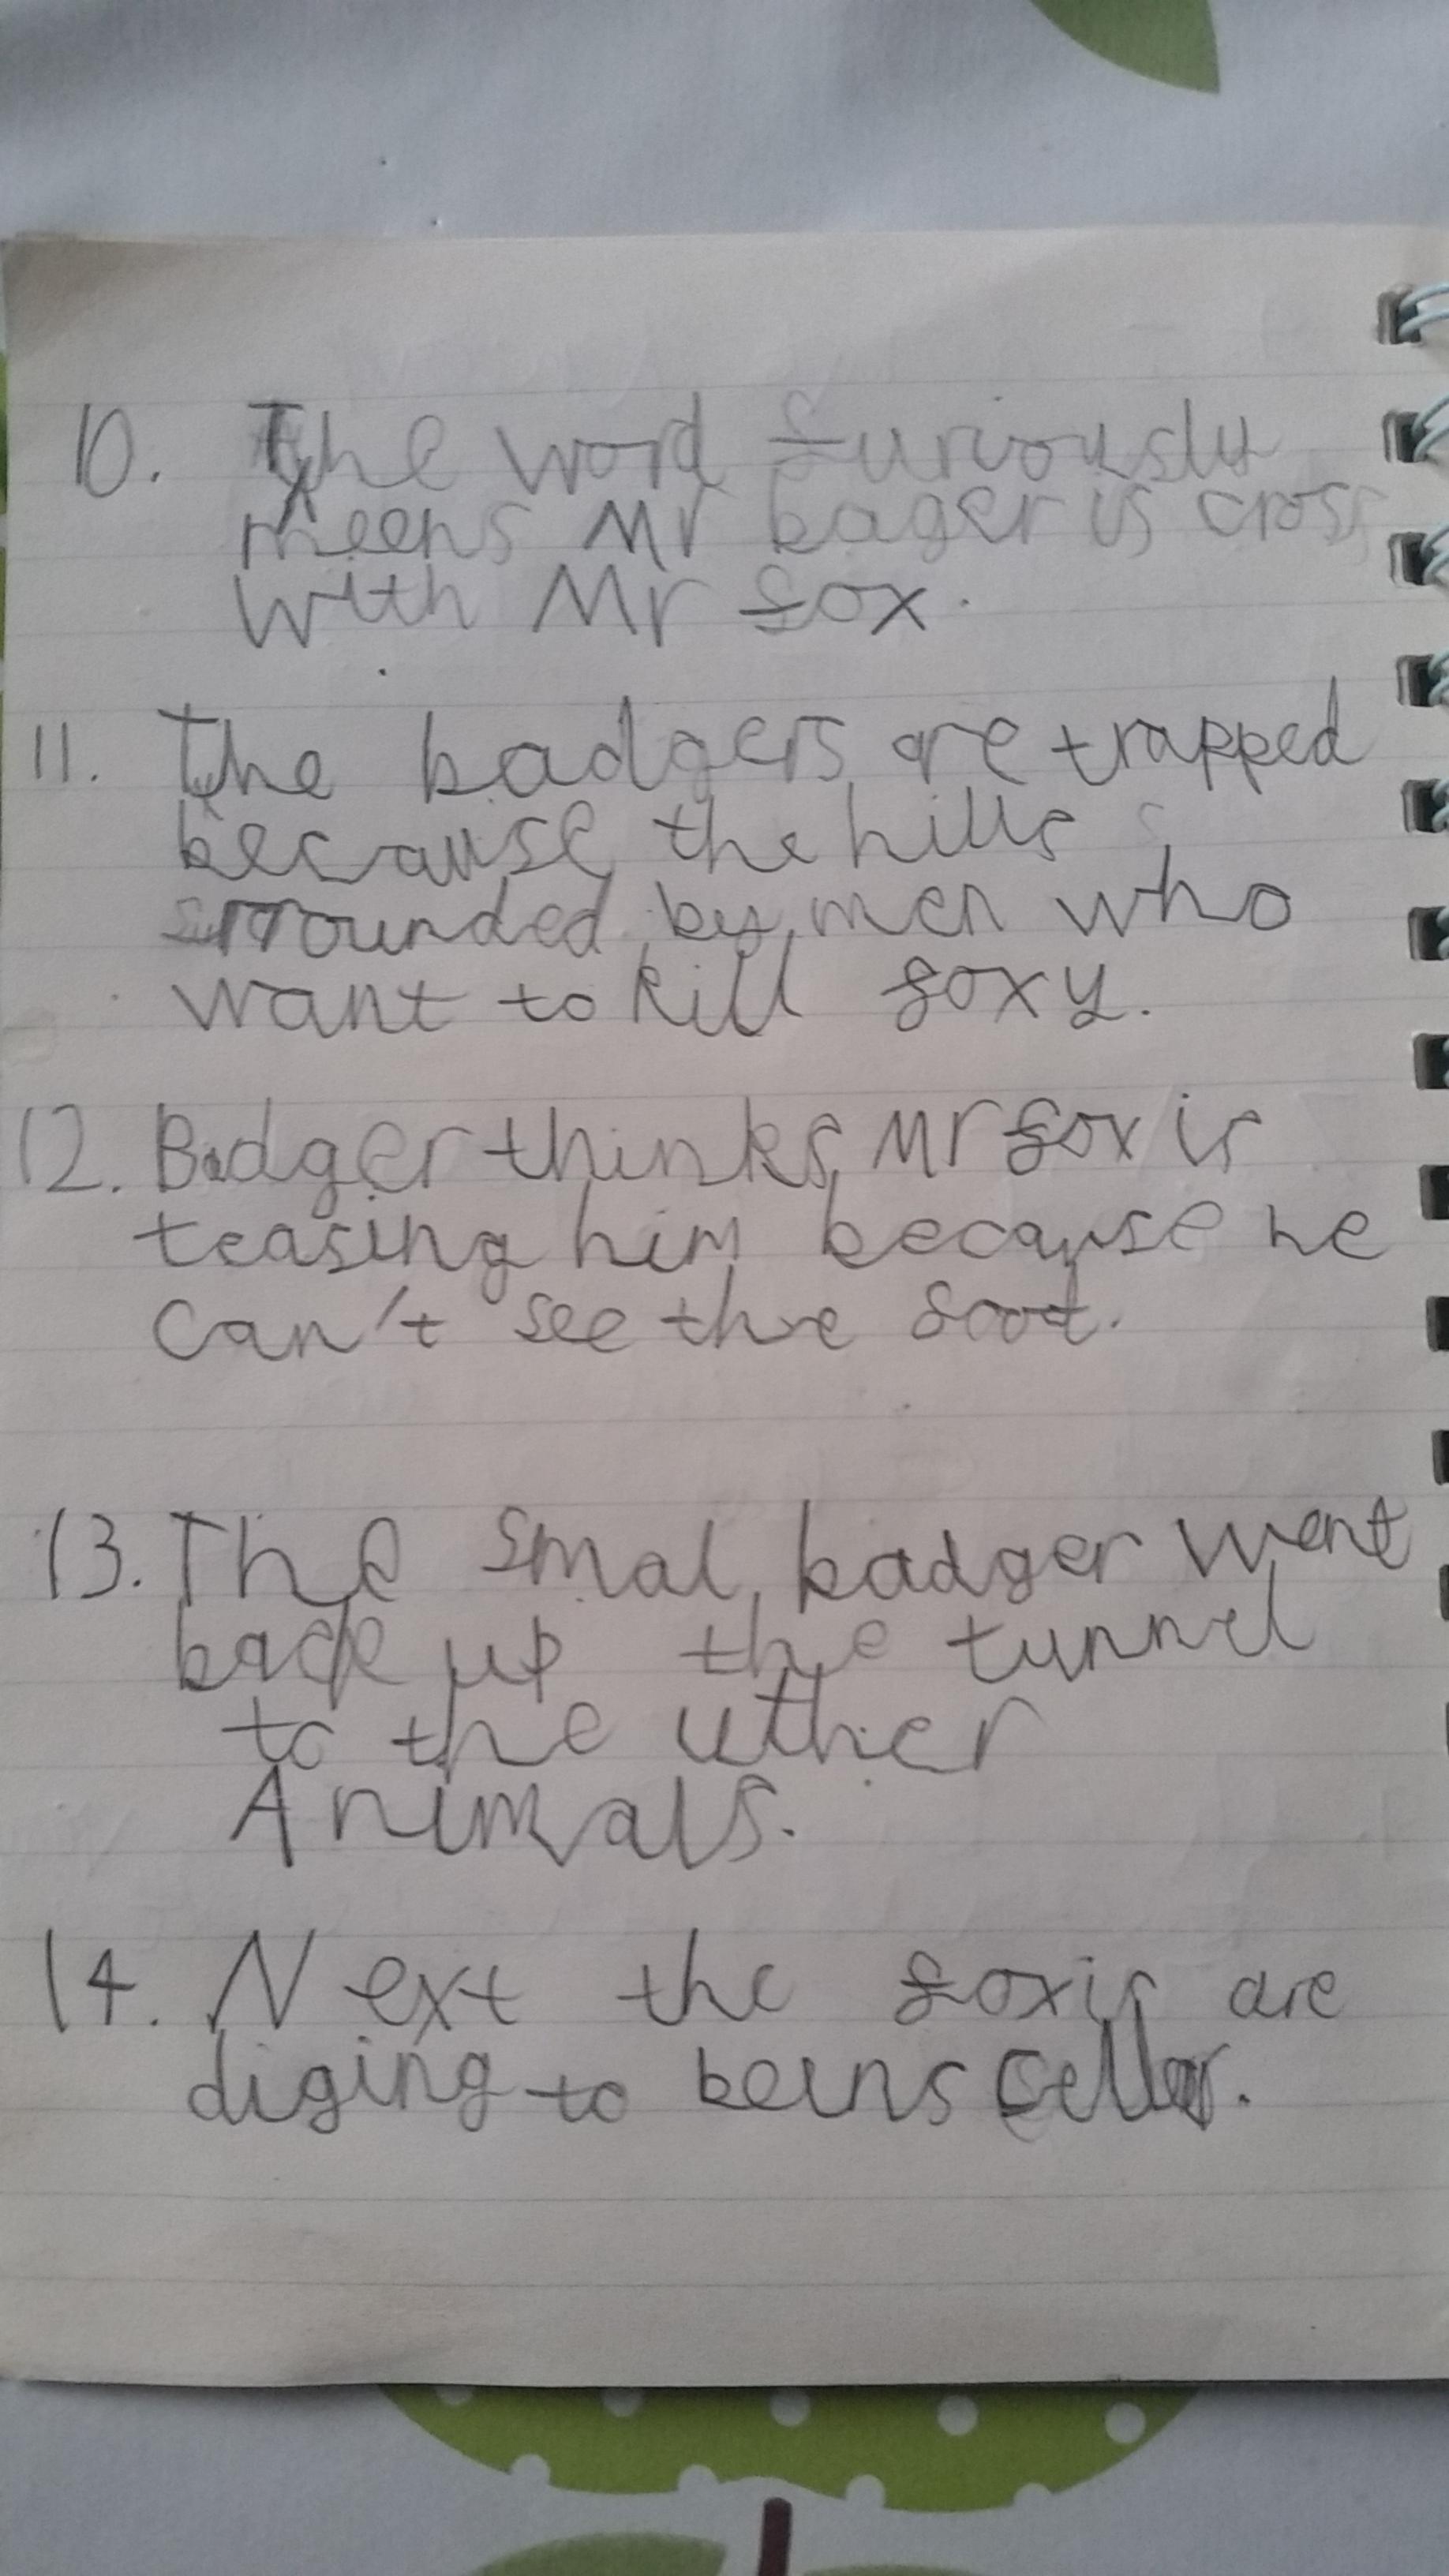 10. The word furiously
meens Mr bager is cross
with Mr fox.
11. The badgers are trapped
because the hills
srrounded by men who
want to kill foxy.
12. Badger thinks Mr fox is
teasing him because he
can't see the food.
13. The smal badger went
back up the tunnel
to the uther
Animals.
14. Next the foxis are
diging to beins cellar.